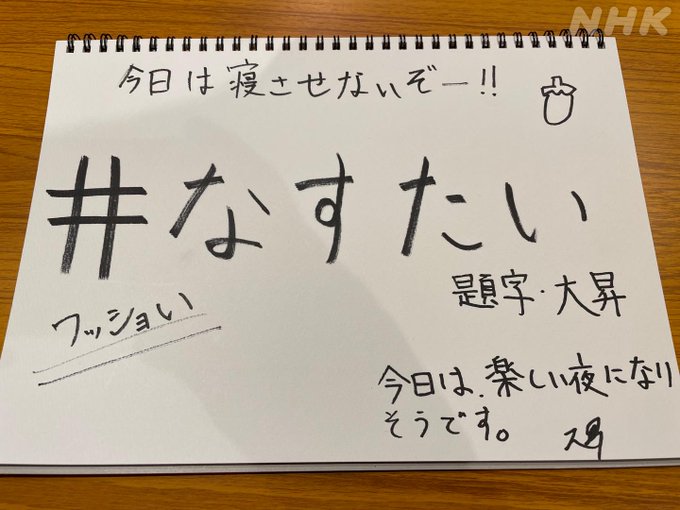 NHK
今日は寝させないぞー!!
#なすたい
題字・大昇
ワッショい
今日は、楽しい夜になり
そうです。